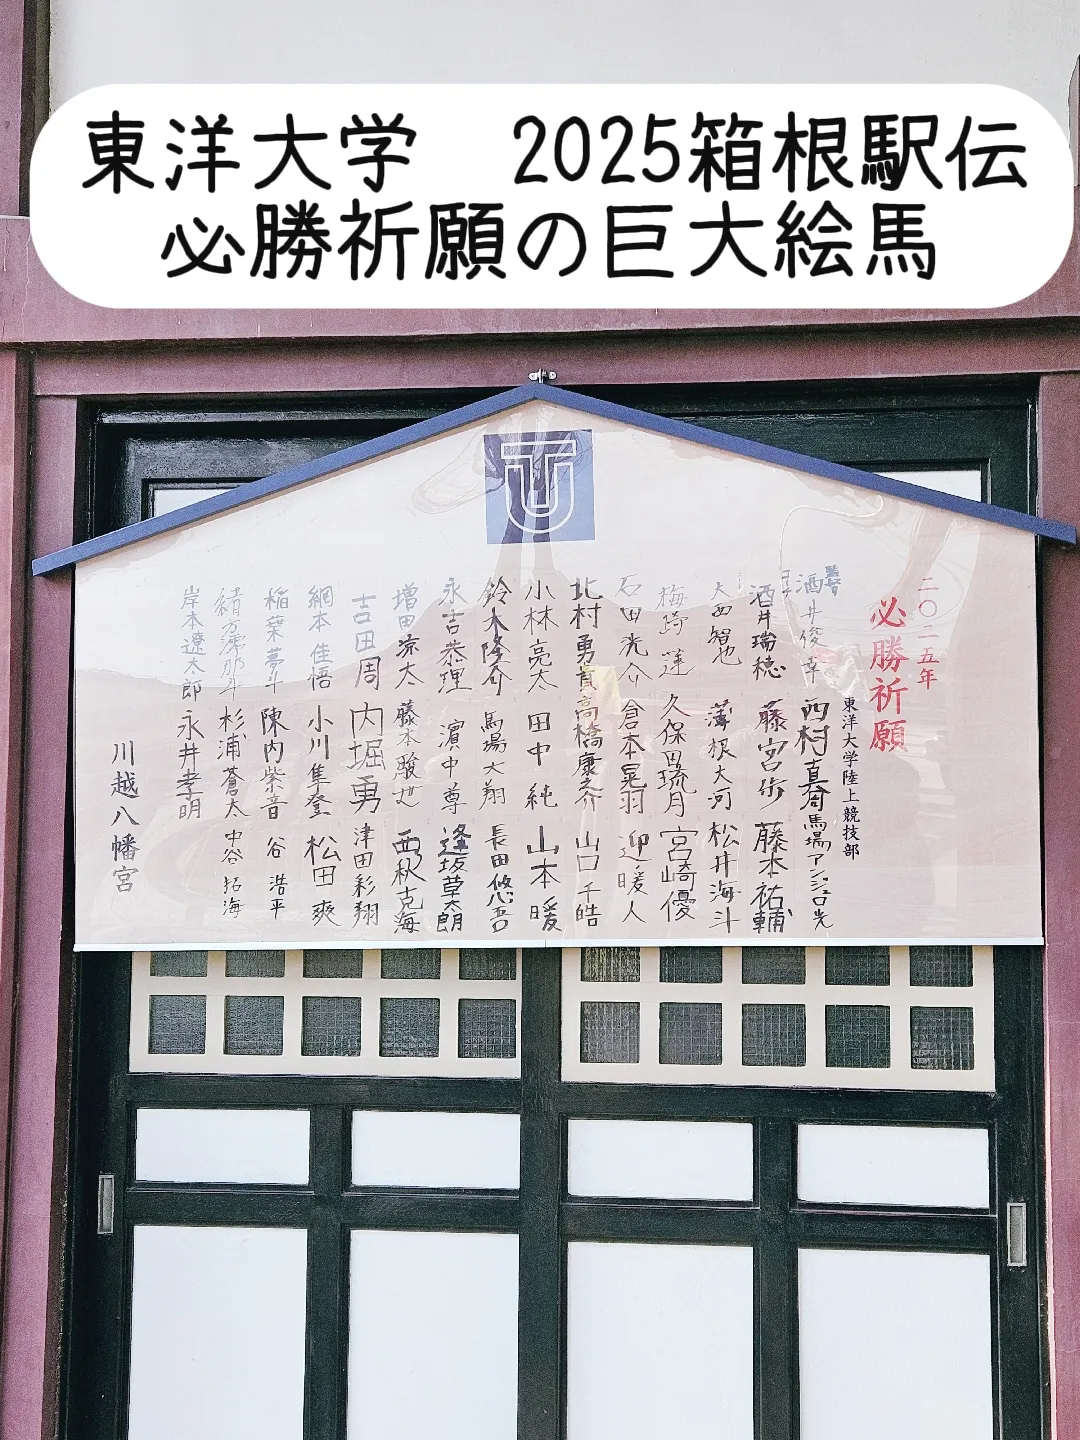 東洋大学　2025箱根駅伝
必勝祈願の巨大絵馬
TU
二〇二五年
必勝祈願
東洋大学陸上競技部
監督 酒井俊幸 西村真周 馬場アンジェロ光
酒井瑞穂 藤宮歩 藤本祐輔
大西智也 薄根大河 松井海斗
梅崎蓮 久保田琉月 宮崎優
石田洸介 倉本晃羽 迎暖人
北村勇貴 高橋康之介 山口千皓
小林亮太 田中純 山本暖
鈴木隆介 馬場大翔 長田悠吾
永吉恭理 濵中尊 逢坂草太朗
増田涼太 藤本駿世 西秋克海
吉田周 内堀勇 津田彩翔
網本佳悟 小川隼登 松田爽
稲葉夢斗 陳内紫音 谷浩平
緒方 杉浦蒼太 中谷拓海
岸本遼太郎 永井孝明
川越八幡宮